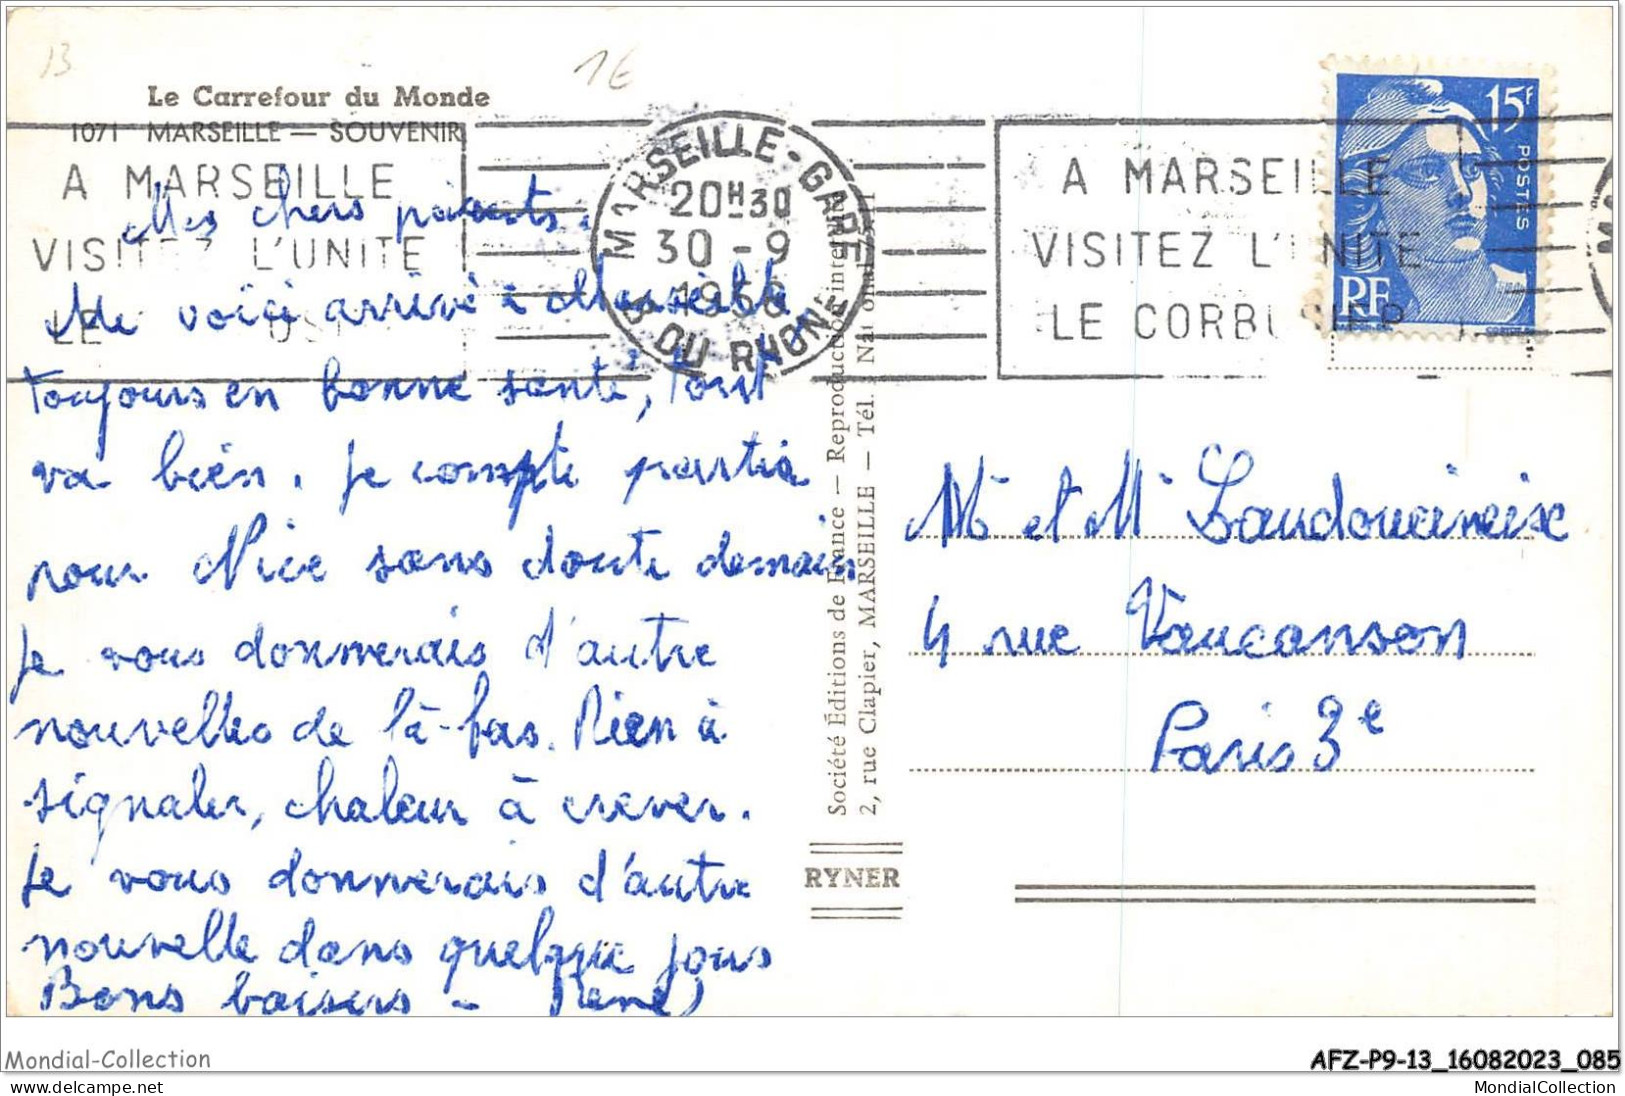 13
1€
Le Carrefour du Monde
1071 MARSEILLE — SOUVENIR
A MARSEILLE
VISITEZ L'UNITE
LE
MARSEILLE-GARE
20H30
30 - 9
1956
B DU RHONE
A MARSEILLE
VISITEZ L'UNITE
LE CORBUSIER
15F
POSTES
RF
Mes chers parents.
Me voici arrivé à Marseille
toujours en bonne santé, tout
va bien. je compte partir
pour Nice sans doute demain
je vous donnerais d'autre
nouvelles de là-bas. Rien à
signaler, chaleur à crever.
je vous donnerais d'autre
nouvelle dans quelque jours
Bons baisers - René
Société Éditions de France — Reproduction interdite
2, rue Clapier, MARSEILLE — Tél. National
RYNER
Mr et Me
4 rue Vaucanson
Paris 3e
Mondial-Collection
AFZ-P9-13_16082023_085
www.delcampe.net
MondialCollection